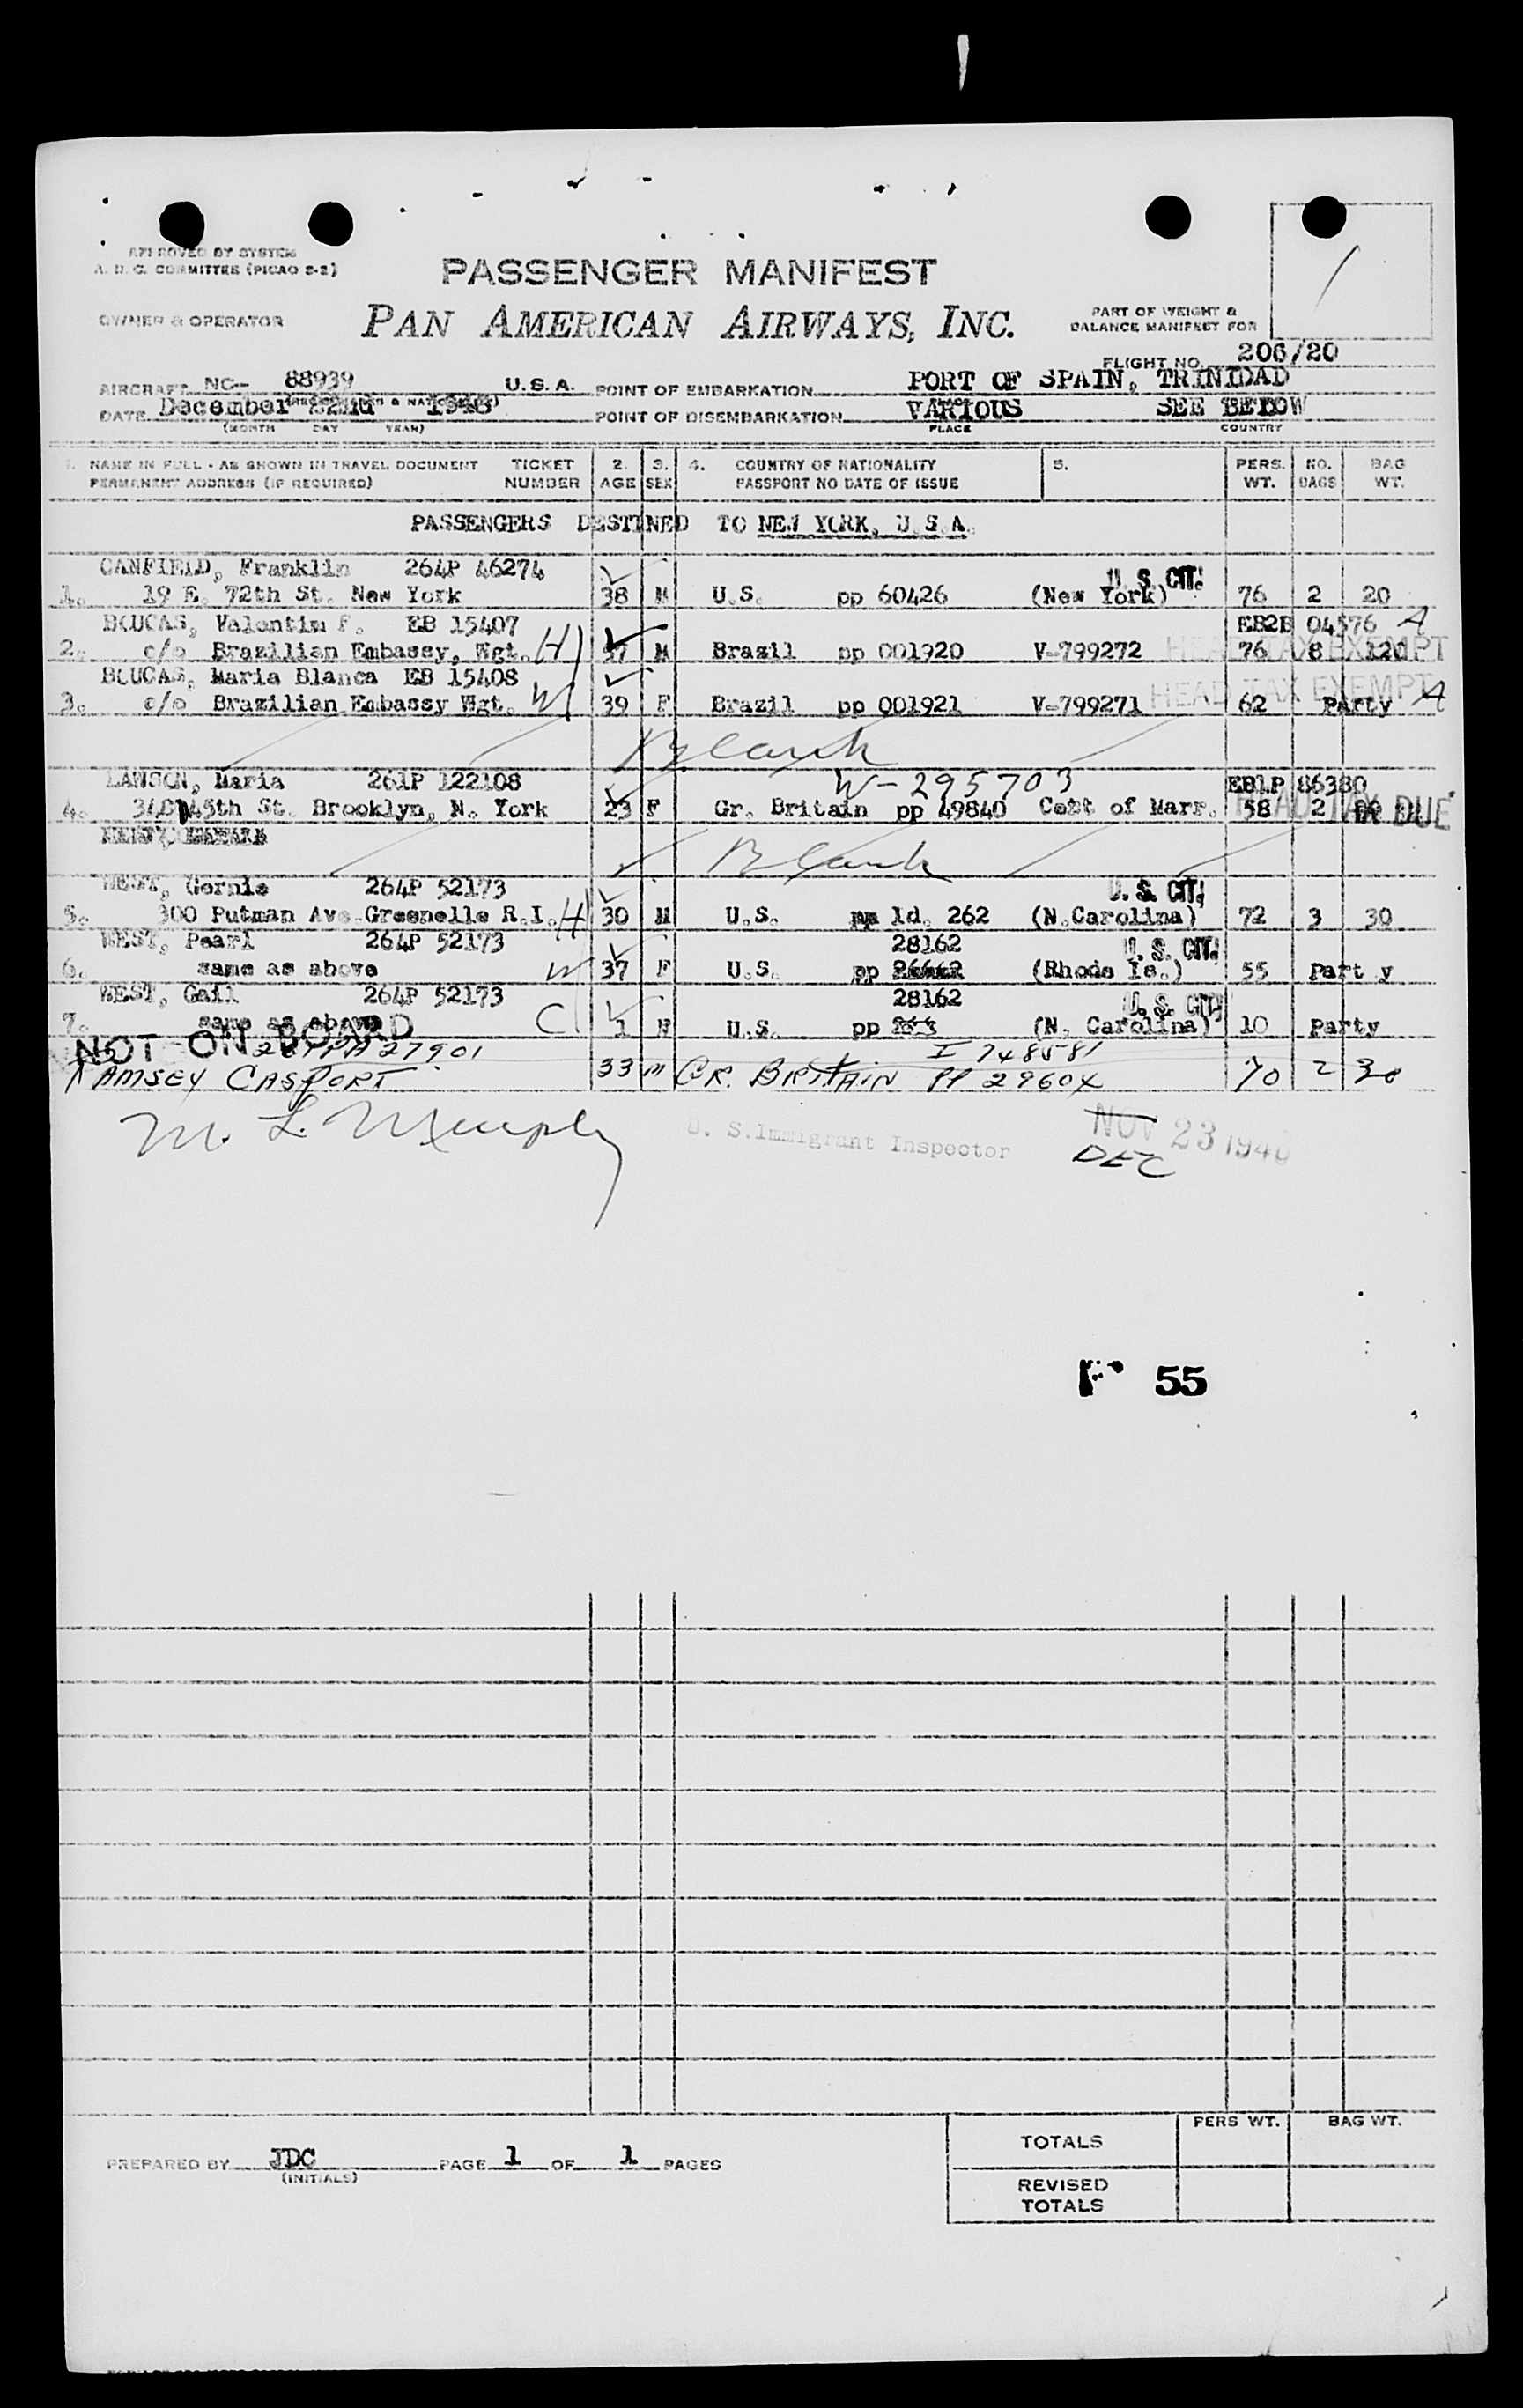 APPROVED BY SYSTEM
A. D. C. COMMITTEE (PICAO 2-2)
PASSENGER MANIFEST
OWNER & OPERATOR
PAN AMERICAN AIRWAYS, INC.
PART OF WEIGHT &
BALANCE MANIFEST FOR
FLIGHT NO. 206/20
AIRCRAFT NC- 88939 U.S.A. POINT OF EMBARKATION PORT OF SPAIN, TRINIDAD
DATE December 22nd 1948 POINT OF DISEMBARKATION VARIOUS SEE BELOW
(MONTH DAY YEAR) PLACE COUNTRY
1. NAME IN FULL - AS SHOWN IN TRAVEL DOCUMENT TICKET 2. 3. 4. COUNTRY OF NATIONALITY 5. PERS. NO. BAG
PERMANENT ADDRESS (IF REQUIRED) NUMBER AGE SEX PASSPORT NO DATE OF ISSUE WT. BAGS WT.
PASSENGERS DESTINED TO NEW YORK, U.S.A.
CANFIELD, Franklin 264P 46274 U. S. CIT.
1. 19 E. 72th St. New York 38 M U.S. pp 60426 (New York) 76 2 20
BOUCAS, Valentim F. EB 15407 EB2B 04576 A
2. c/o Brazilian Embassy, Wgt. H M Brazil pp 001920 V-799272 HEAD TAX EXEMPT 76 8 120
BOUCAS, Maria Blanca EB 15408
3. c/o Brazilian Embassy Wgt. W 39 F Brazil pp 001921 V-799271 HEAD TAX EXEMPT 62 Party A
Blank
LAWSON, Maria 261P 122108 W-295703 EB1P 86380
4. 45th St. Brooklyn, N. York 23 F Gr. Britain pp 49840 Cert of Marr. 58 2 HEAD TAX DUE
Blank
WEST, Gernie 264P 52173 U. S. CIT.
5. 300 Putman Ave. Greenelle R.I. H 30 M U.S. Id. 262 (N.Carolina) 72 3 30
WEST, Pearl 264P 52173 28162 U. S. CIT.
6. same as above W 37 F U.S. pp (Rhode Is.) 55 Part y
WEST, Gail 264P 52173 28162 U. S. CIT.
7. same as above C 1 U.S. pp (N. Carolina) 10 Party
NOT ON BOARD 27901 I 748581
RAMSEY CASPORT 33 M GR. BRITAIN PP 29604 70 2 30
M. L. Murphy U. S. Immigrant Inspector NOV 23 1948
DEC
55
TOTALS PERS WT. BAG WT.
PREPARED BY JDC PAGE 1 OF 1 PAGES
(INITIALS)
REVISED
TOTALS